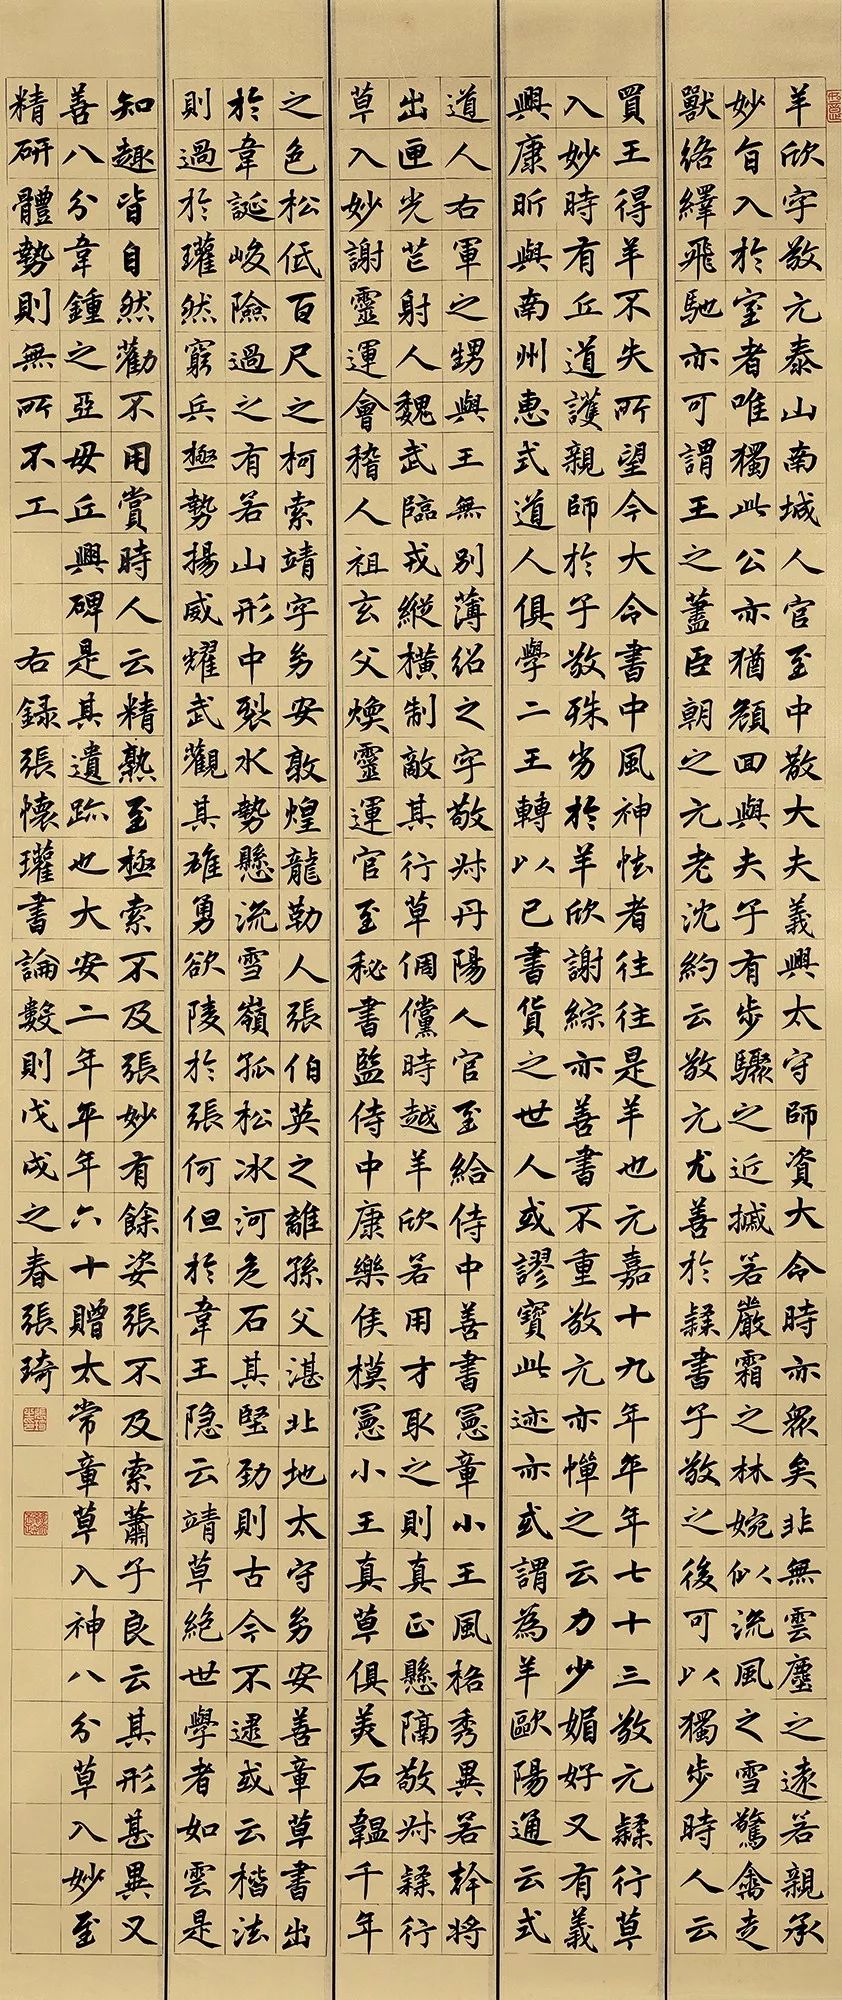 羊欣字敬元泰山南城人官至中散大夫義興太守師資大令時亦眾矣非無雲塵之遠若親承
妙旨入於室者唯獨此公亦猶顏回與夫子有步驟之近摵若嚴霜之林婉似流風之雪驚禽走
獸絡繹飛馳亦可謂王之藎臣朝之元老沈約云敬元尤善於隸書子敬之後可以獨步時人云
買王得羊不失所望今大令書中風神怯者往往是羊也元嘉十九年卒年七十三敬元隸行草
入妙時有丘道護親師於子敬殊劣於羊欣謝綜亦善書不重敬元亦憚之云力少媚好又有義
興康昕與南州惠式道人俱學二王轉以己書貨之世人或謬寶此迹亦或謂為羊歐陽通云式
道人右軍之甥與王無別薄紹之字敬叔丹陽人官至給侍中善書憲章小王風格秀異若幹將
出匣光芒射人魏武臨戎縱橫制敵其行草倜儻時越羊欣若用才取之則真正懸隔敬叔隸行
草入妙謝靈運會稽人祖玄父煥靈運官至秘書監侍中康樂侯模憲小王真草俱美石韞千年
之色松低百尺之柯索靖字幼安敦煌龍勒人張伯英之離孫父湛北地太守幼安善章草書出
於韋誕峻險過之有若山形中裂水勢懸流雪嶺孤松冰河危石其堅勁則古今不逮或云楷法
則過於瓘然窮兵極勢揚威耀武觀其雄勇欲陵於張何但於韋王隱云靖草絕世學者如雲是
知趣皆自然勸不用賞時人云精熟至極索不及張妙有餘姿張不及索蕭子良云其形甚異又
善八分韋鍾之亞毋丘興碑是其遺跡也大安二年卒年六十贈太常章草入神八分草入妙至
精研體勢則無所不工 右錄張懷瓘書論數則戊戌之春張琦